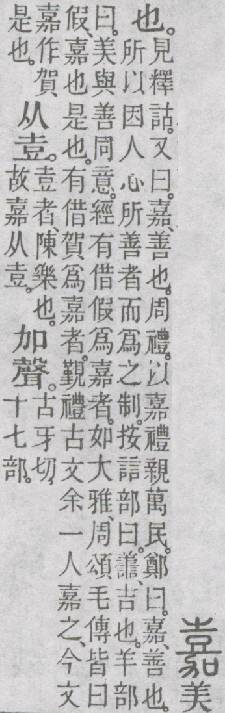 嘉美
也。見釋詁。又曰。嘉、善也。周禮。以嘉禮親萬民。鄭曰。嘉、善也。
所以因人心所善者而爲之制。按誩部曰。譱、吉也。羊部
曰。美與善同意。經有借假爲嘉者。如大雅、周頌毛傳皆曰
假、嘉也是也。有借賀爲嘉者。覲禮古文余一人嘉之、今文
嘉作賀
是也。
从壴。
壴者、陳樂也。
故嘉从壴。
加聲。
古牙切。
十七部。